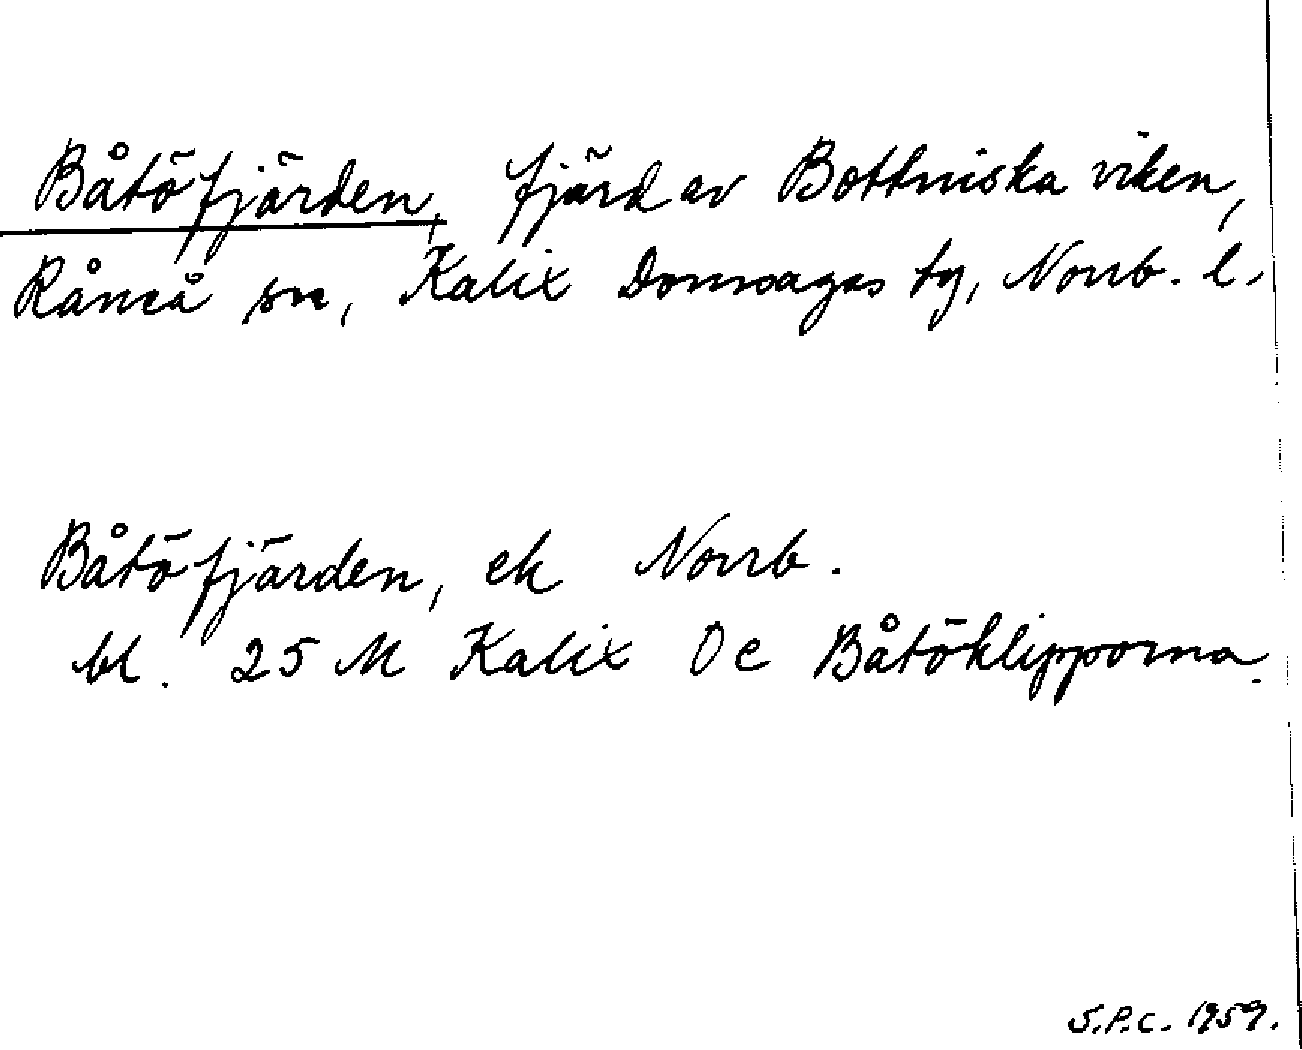 Båtöfjärden, fjärd av Bottniska viken,
Råneå sn, Kalix Domsagas tg, Norrb. l.
Båtöfjärden, ek Norrb.
bl. 25 M Kalix Oe Båtöklipporna.
S.P.C. 1959.